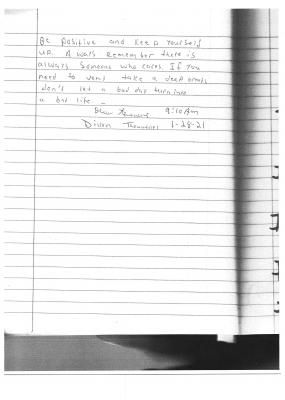 Be positive and keep yourself
up. Always remember there is
always someone who cares. If you
need to vent take a deep breath
don't let a bad day turn into
a bad life -
9:10 Am
1-28-21